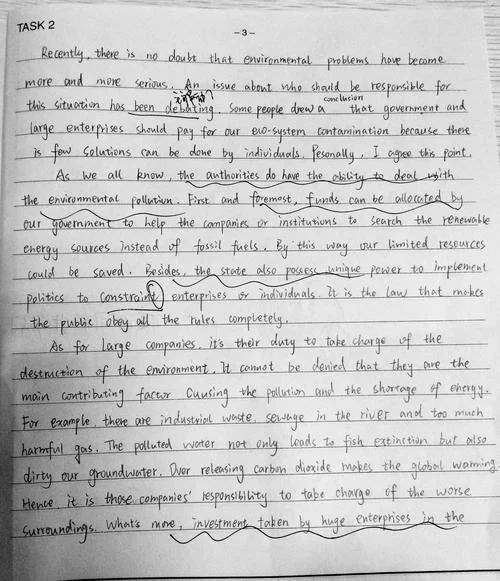 TASK 2
-3-
Recently, there is no doubt that environmental problems have became
more and more serious. An issue about who should be responsible for
this situation has been debating. Some people drew a conclusion that government and
large enterprises should pay for our eco-system contamination because there
is few solutions can be done by individuals. Pesonally, I agree this point.
As we all know, the authorities do have the ability to deal with
the environmental pollution. First and foremest, funds can be allocated by
our government to help the companies or institutions to search the renewable
energy sources instead of fossil fuels. By this way our limited resources
could be saved. Besides, the state also possess unique power to implement
politics to constraint enterprises or individuals. It is the law that makes
the public obey all the rules completely.
As for large companies, it's their duty to take charge of the
destruction of the environment. It cannot be denied that they are the
main contributing factor causing the pollution and the shortage of energy.
For example, there are industrial waste, sewage in the river and too much
harmful gas. The polluted water not only leads to fish extinction but also
dirty our groundwater. Over releasing carbon dioxide makes the global warming.
Hence, it is those companies' responsibility to take charge of the worse
surroundings. What's more, investment taken by huge enterprises in the